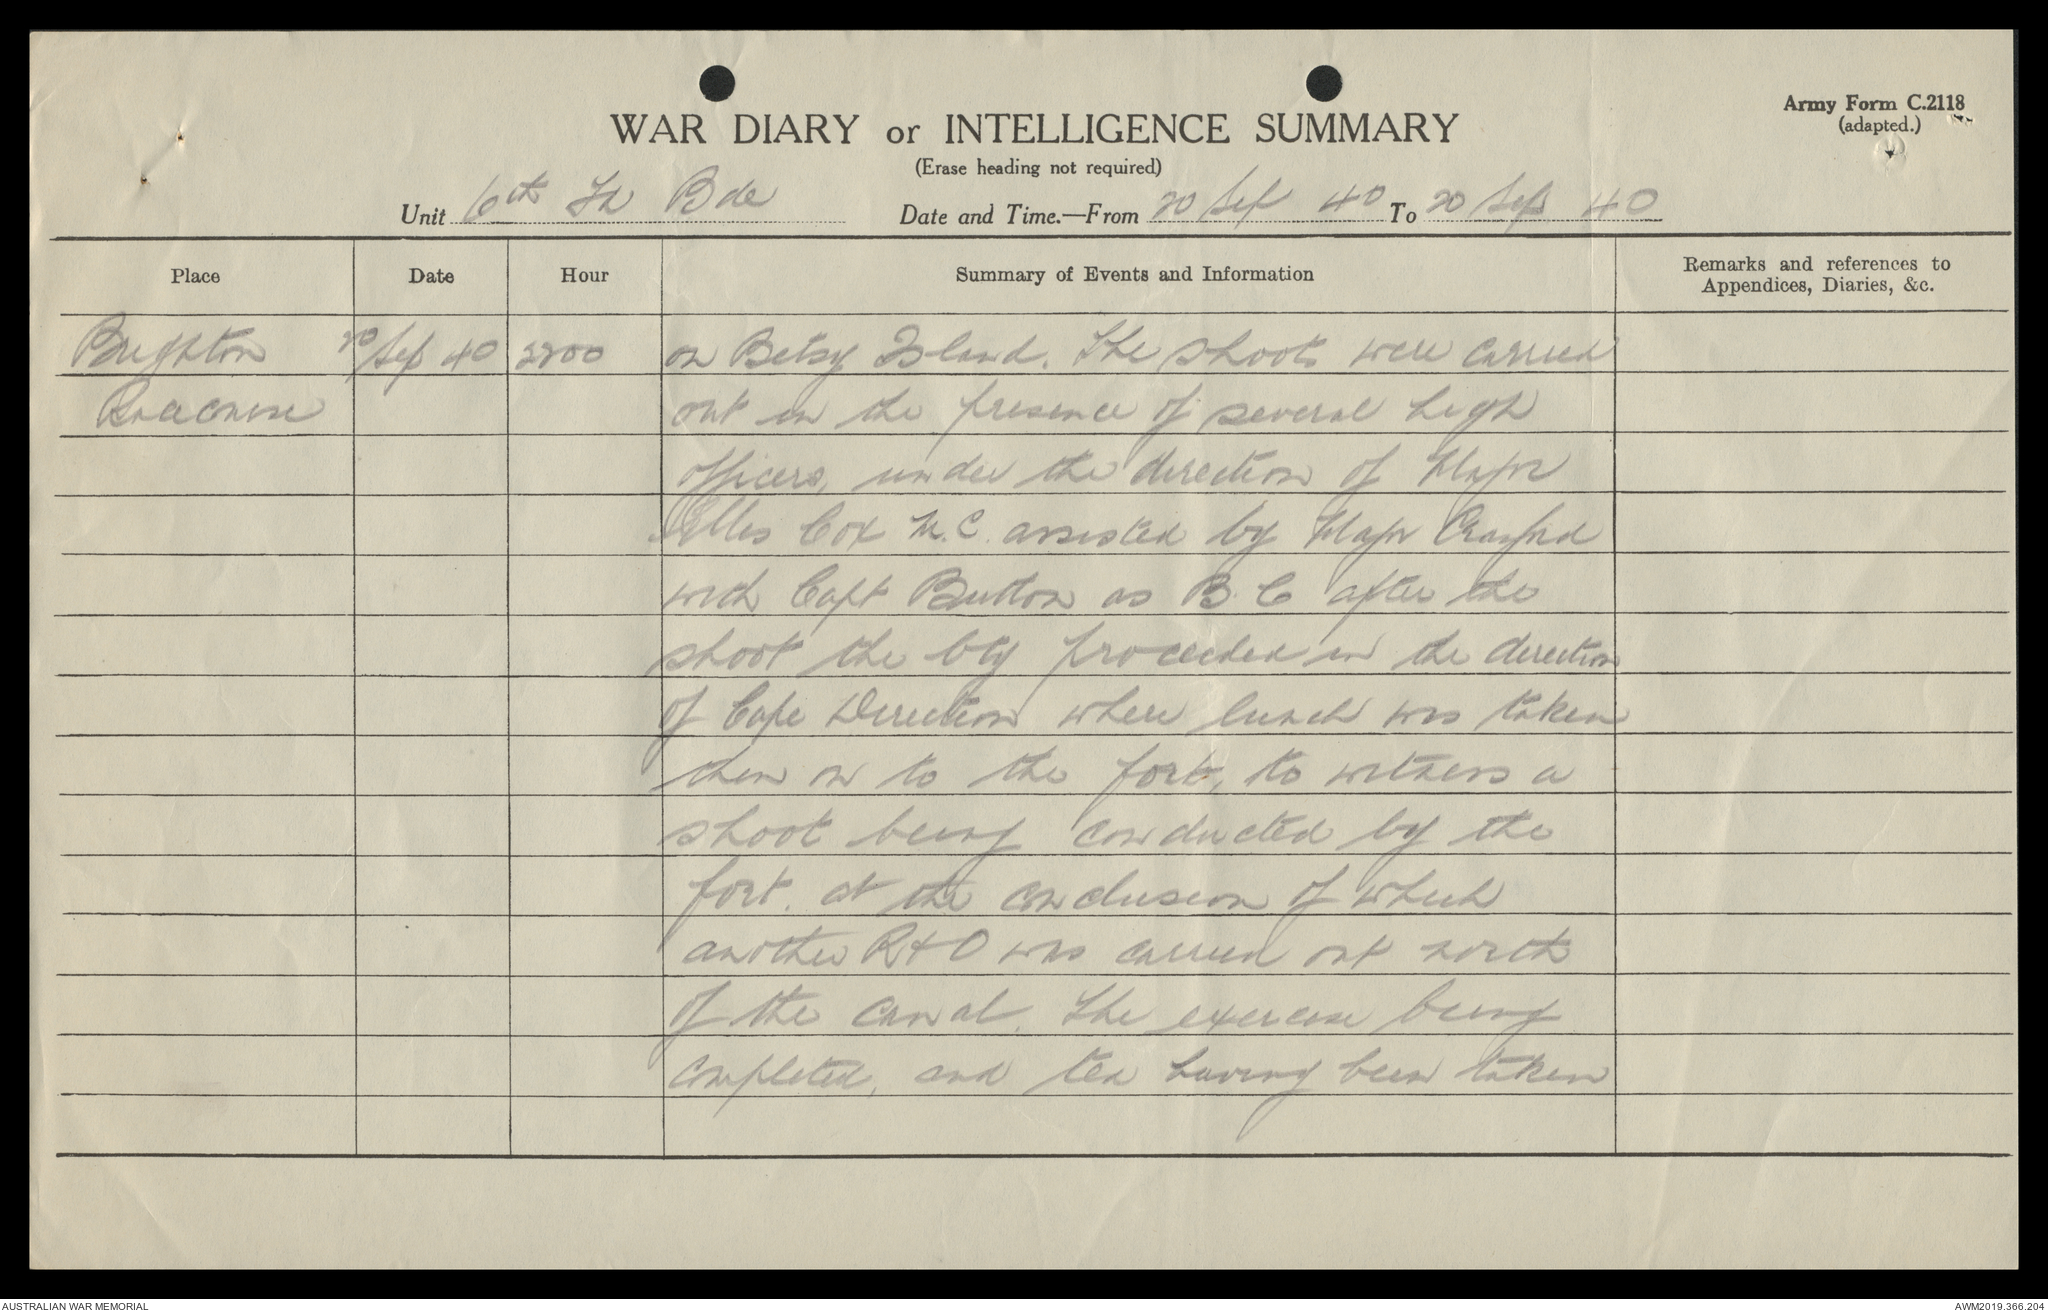 Army Form C.2118
(adapted.)
WAR DIARY or INTELLIGENCE SUMMARY
(Erase heading not required)
Unit 6th Fd Bde Date and Time.—From 20 Sep 40 To 20 Sep 40
Place Date Hour Summary of Events and Information Remarks and references to Appendices, Diaries, &c.
Brighton 20 Sep 40 2200 on Betsy Island. The shoots were carried
Racecourse out in the presence of several high
officers, under the direction of Major
Elles Cox M.C. assisted by Major
with Capt Button as B.C after the
shoot the bty proceeded in the direction
of Cape Direction where lunch was taken
then on to the fort, to witness a
shoot being conducted by the
fort. at the conclusion of which
another R&O was carried out north
of the canal. The exercise being
completed, and tea having been taken
AUSTRALIAN WAR MEMORIAL
AWM2019.366.204